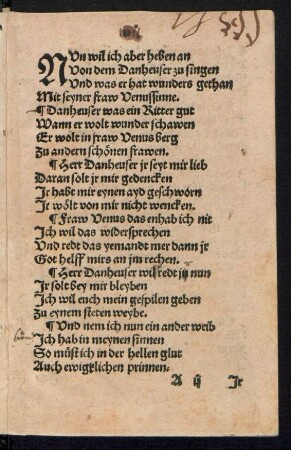 NUn wil ich aber heben an
Von dem Danheuser zu singen
Und was er hat wunders gethan
Mit seyner fraw Venussinne.
¶ Danheuser was ein Ritter gut
Wann er wolt wunder schawen
Er wolt in fraw Venus berg
Zu andern schönen frawen.
¶ Herr Danheuser jr seyt mir lieb
Daran solt jr mir gedencken
Jr habt mir eynen ayd geschworn
Jr wölt von mir nicht wencken.
¶ Fraw Venus das enhab ich nit
Jch wil das widersprechen
Und redt das yemandt mer dann jr
Got helff mirs an jm rechen.
¶ Herr Danheuser wie redt jr nun
Jr solt bey mir bleyben
Jch wil euch mein gespilen geben
Zu eynem steten weybe.
¶ Und nem ich nun ein ander weib
Jch hab in meynen sinnen
So müst ich in der hellen glut
Auch ewigklichen prinnen.
A ij Jr